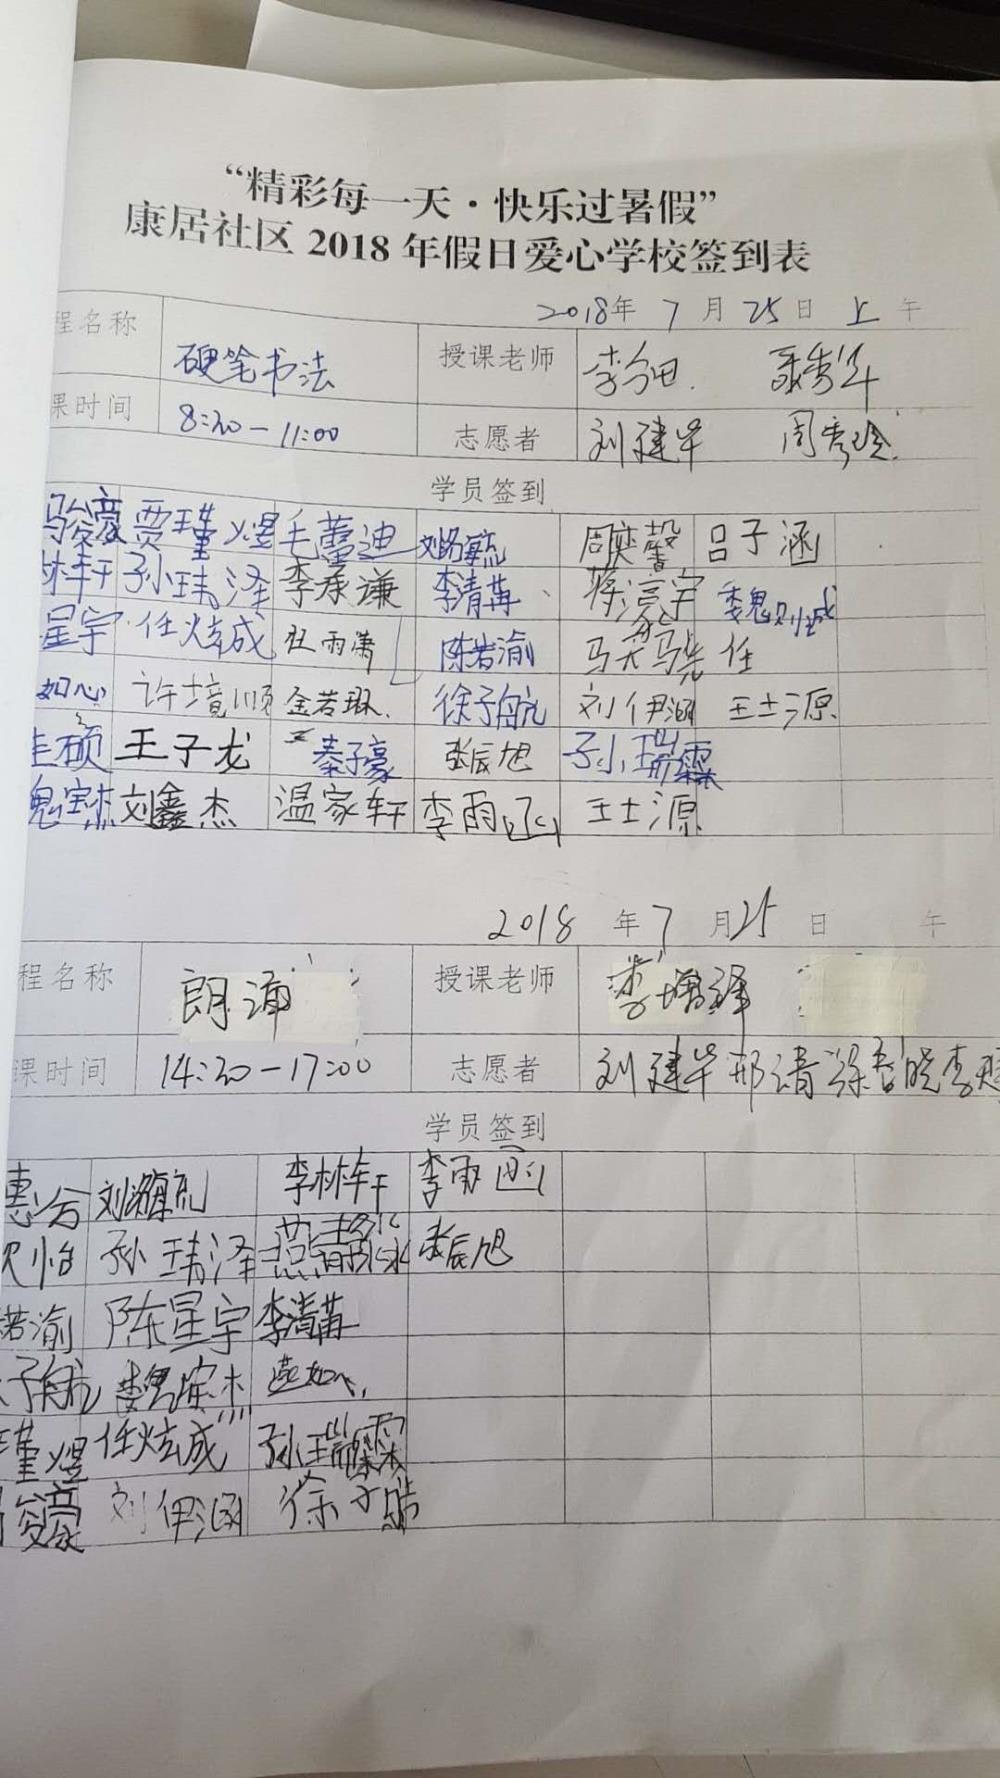 “精彩每一天·快乐过暑假”
康居社区 2018 年假日爱心学校签到表
2018年 7 月 25 日 上 午
程名称 硬笔书法 授课老师 李 聂秀华
课时间 8:30-11:00 志愿者 刘建华 周秀玲
学员签到
俊豪 贾瑾煜 毛蕾迪 周奕馨 吕子涵
林轩 孙玮泽 李承谦 李清苒 蒋濠宇 魏
星宇 任炫成 杜雨潇 陈若渝 任
如心 许境顺 金若琳 徐子航 刘伊涵 王士源
硕 王子龙 秦子豪 张辰旭 孙瑞霖
魏宝杰 刘鑫杰 温家轩 李雨函 王士源
2018 年 7 月 25 日 午
程名称 朗诵 授课老师 李增泽
课时间 14:30-17:00 志愿者 刘建华 邢清 徐晓 李
学员签到
惠 李林轩 李雨函
怡 孙玮泽 张辰旭
若渝 陈星宇 李清苒
子航 魏宝杰
瑾煜 任炫成 孙瑞霖
俊豪 刘伊涵 徐子皓